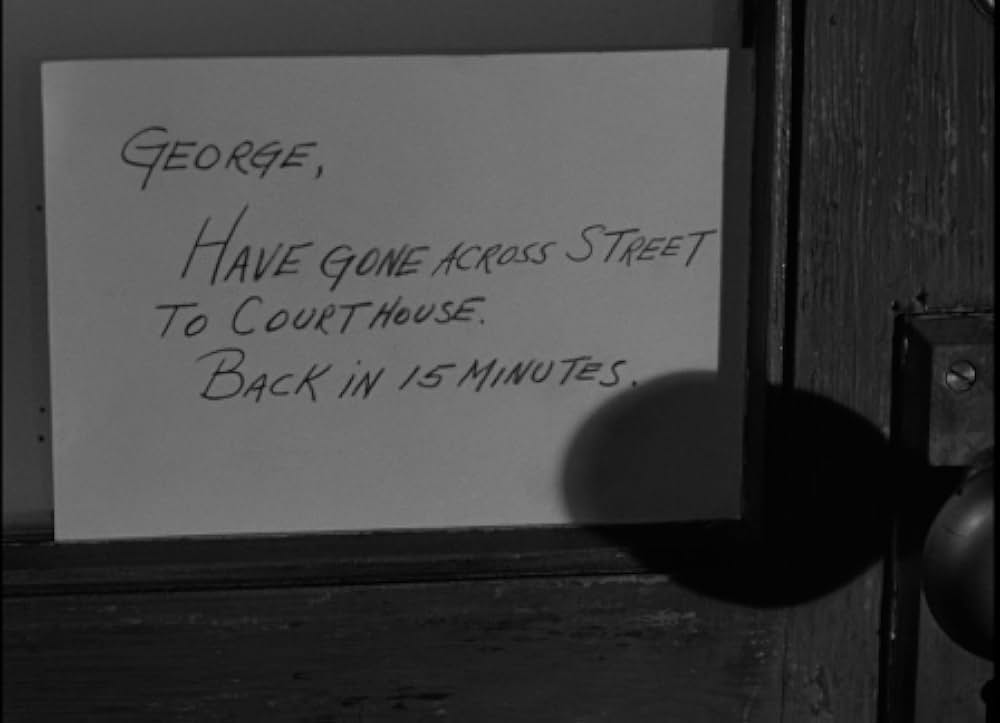 GEORGE,
HAVE GONE ACROSS STREET
TO COURTHOUSE.
BACK IN 15 MINUTES.